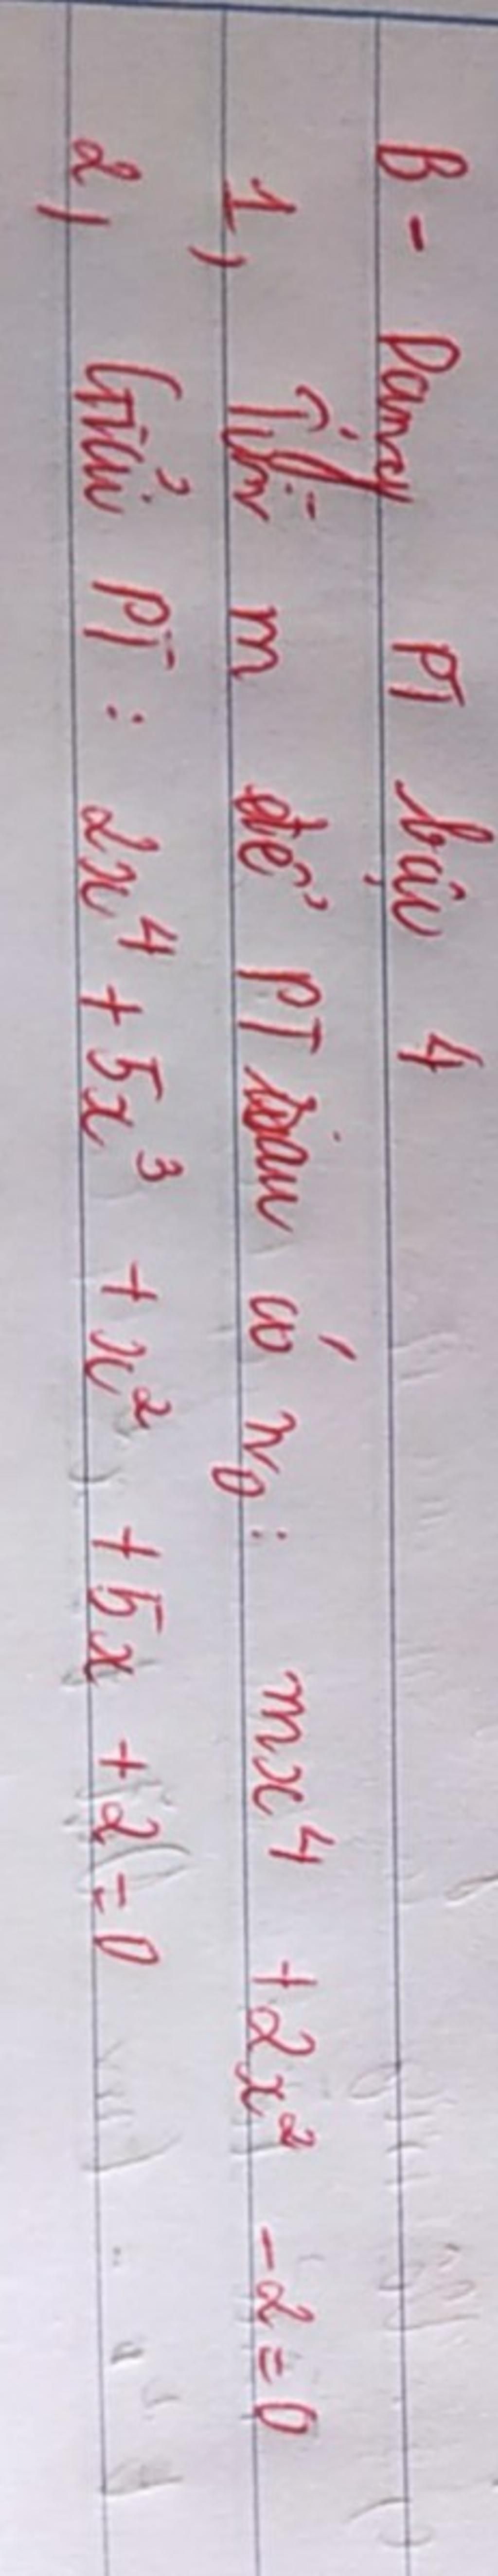 B - Dạng PT bậc 4
1, Tìm m để PT sau có n₀: mx⁴ + 2x² - 2 = 0
2, Giải PT: 2x⁴ + 5x³ + x² + 5x + 2 = 0